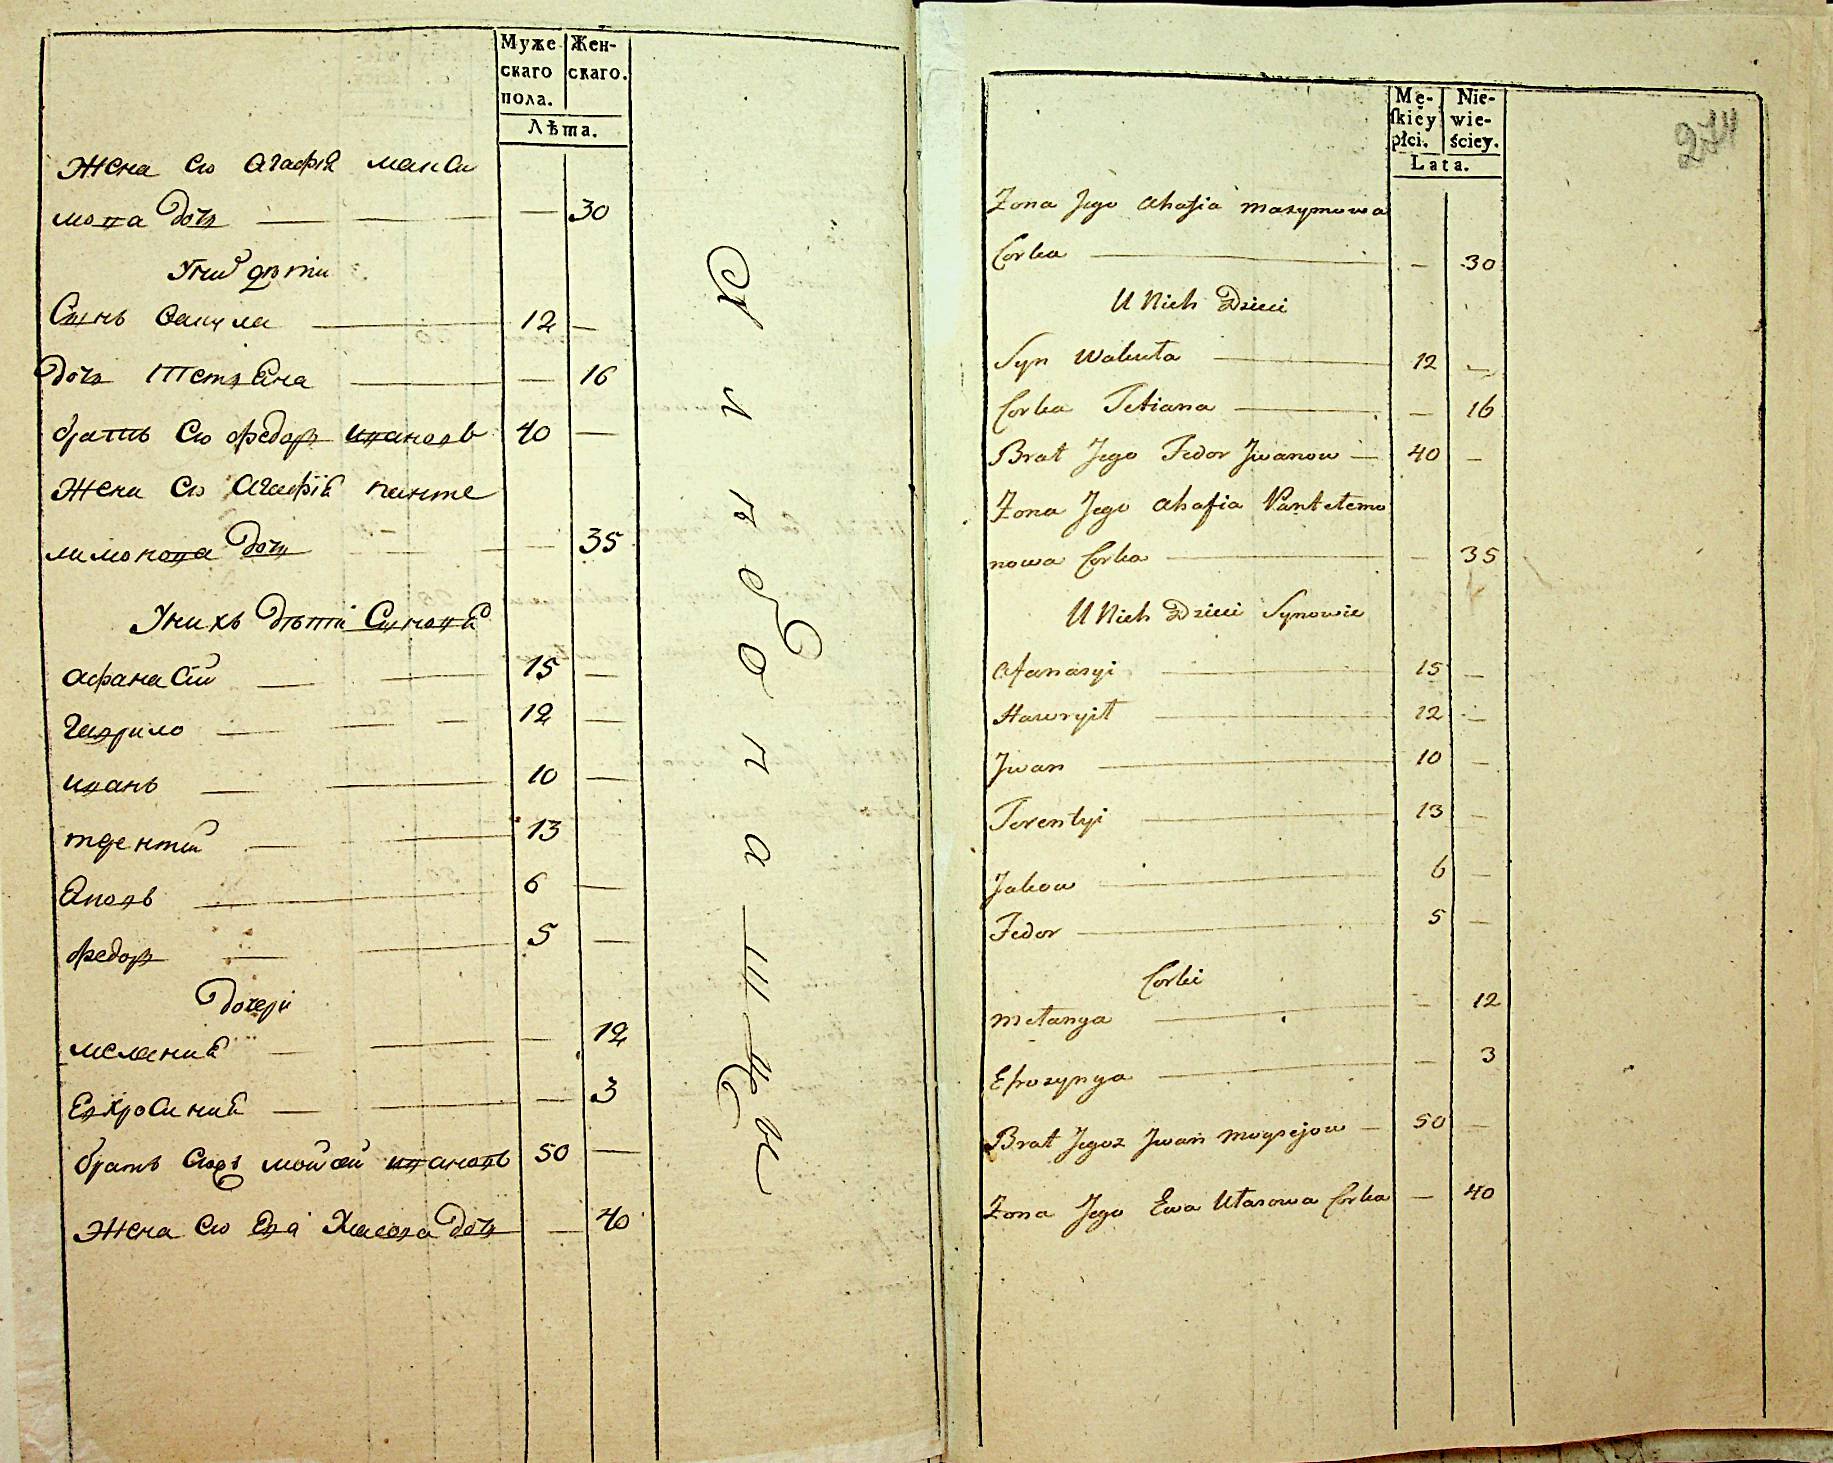 Муже
скаго
пола.
Жен-
скаго.
Лѣта.
Жена ево Агафія макси
мова дочь — — 30
У них дѣти
Сынъ вакула — 12 —
дочь Тетяна — — 16
братъ ево федоръ ивановъ 40 —
Жена ево Агафія панте
лимонова дочь — — 35
У нихъ дѣти Синовя
афанасій — — 15 —
Гаврило — — — 12 —
иванъ — — 10 —
терентій — — 13
Яковъ — 6 —
федоръ — — 5 —
дочери
мелания — — — 12
Евхросиния — — — 3
братъ мойсей ивановъ 50 —
Жена ево Ева дочь — 40
Mę-
skiéy
płci.
Nie-
wie-
ściey.
Lata.
274
Żona Jego Ahafia maxymowa
Corka — — 30
U Nich Dzieci
Syn Wakuła — 12 —
Corka Tetiana — — 16
Brat Jego Fedor Jwanow — 40 —
Żona Jego Ahafia Pantelemo
nowa Corka — — 35
U Nich Dzieci Synowie
Afanasyi — 15 —
Hawryił — 12 —
Jwan — 10 —
Terentyi — 13 —
Jakow — 6 —
Fedor — 5 —
Corki
Melanya — — 12
Efrozynya — — 3
Brat Jegoż Jwan moysejow — 50 —
Żona Jego Ewa Własowa Corka — 40